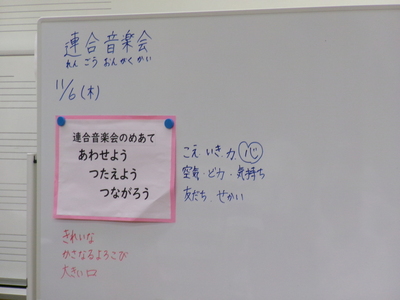 連合音楽会
れんごうおんがくかい
11/6(木)
連合音楽会のめあて
あわせよう
つたえよう
つながろう
こえ.いき.力.心
空気・ピカ・気持ち
友だち.せかい
きれいな
かさなるよろこび
大きい口